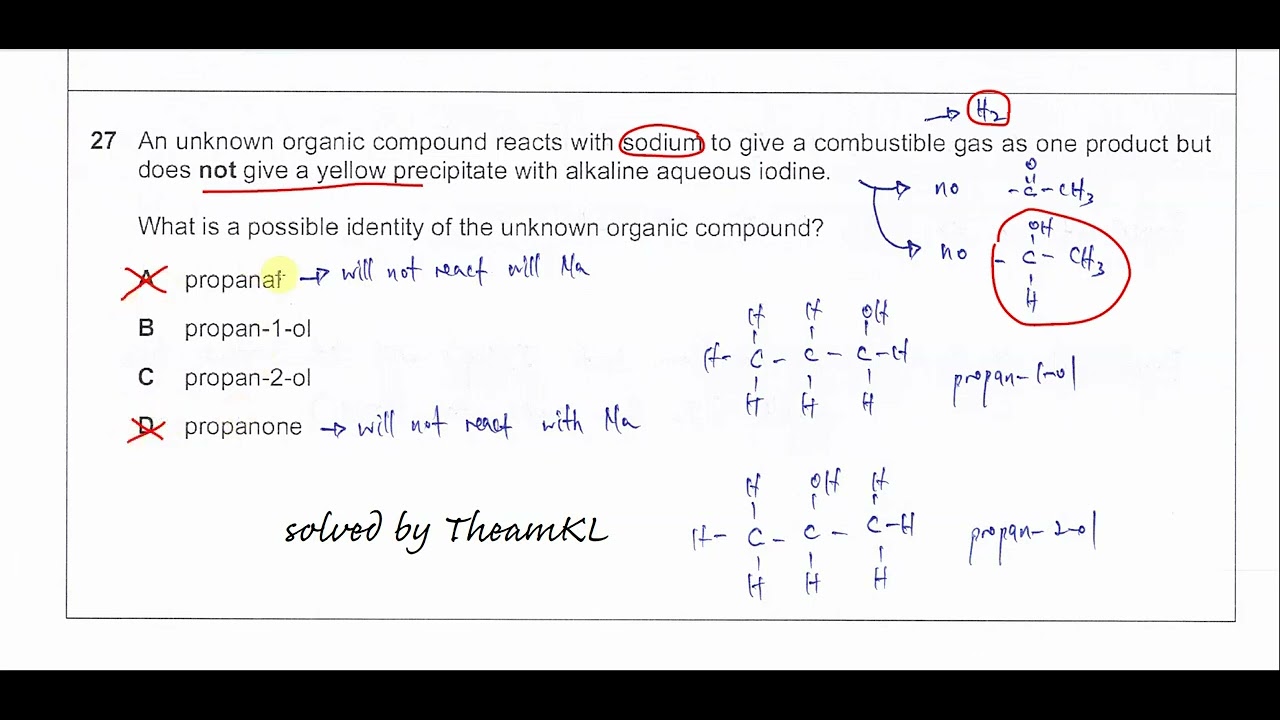 → H2
27 An unknown organic compound reacts with sodium to give a combustible gas as one product but
does not give a yellow precipitate with alkaline aqueous iodine.
→ no
O
-C-CH3
What is a possible identity of the unknown organic compound?
→ no
OH
- C - CH3
H
A propanal → will not react will Na
B propan-1-ol
C propan-2-ol
D propanone → will not react with Na
H H OH
H- C - C - C-H
H H H
propan-1-ol
H OH H
H- C - C - C-H
H H H
propan-2-ol
solved by TheamKL